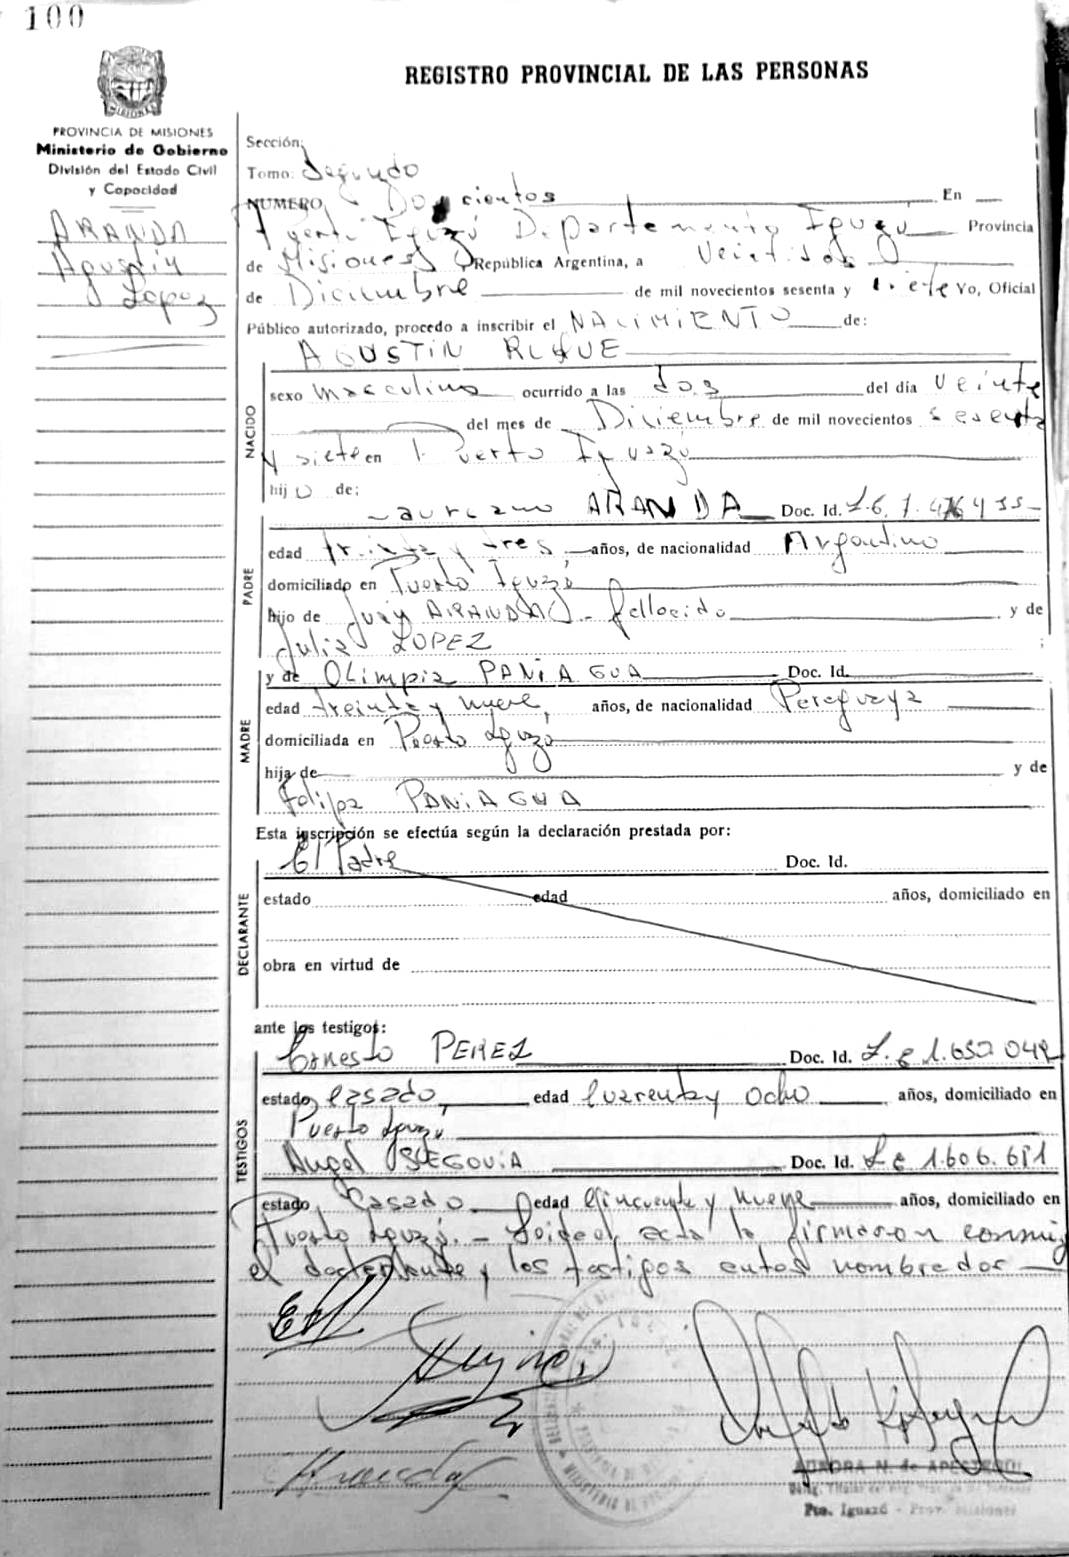 100
REGISTRO PROVINCIAL DE LAS PERSONAS
MISIONES
PROVINCIA DE MISIONES
Ministerio de Gobierno
División del Estado Civil
y Capacidad
ARANDA
Agustín
Lopez
Sección:
Tomo: Segundo
NUMERO Doscientos En
Puerto Iguazú Departamento Iguazú Provincia
de Misiones República Argentina, a Veintisés
de Diciembre de mil novecientos sesenta y siete Yo, Oficial
Público autorizado, procedo a inscribir el NACIMIENTO de:
AGUSTIN ROQUE
NACIDO
sexo masculino ocurrido a las dos del día Veinte
del mes de Diciembre de mil novecientos sesenta
y siete en Puerto Iguazú
hijo de:
PADRE
Laureano ARANDA Doc. Id.
edad treinta y tres años, de nacionalidad Argentino
domiciliado en Puerto Iguazú
hijo de Juan ARANDA - fallecido y de
Julia LOPEZ
MADRE
y de OLimpia PANIAGUA Doc. Id.
edad treinta y nueve, años, de nacionalidad Paraguaya
domiciliada en Puerto Iguazú
hija de y de
Felipa PANIAGUA
Esta inscripción se efectúa según la declaración prestada por:
DECLARANTE
El Padre Doc. Id.
estado edad años, domiciliado en
obra en virtud de
ante los testigos:
TESTIGOS
Ernesto PEREZ Doc. Id. L.E 1.652.042
estado casado, edad Cuarenta y Ocho años, domiciliado en
Puerto Iguazú
Angel SEGOVIA Doc. Id. L E 1.606.611
estado Casado edad Cincuenta y nueve años, domiciliado en
Puerto Iguazú. - Leida el acta la firmaron conmigo
el declarante y los testigos antes nombrados
Aranda
AURORA N. de APESTEGUI
Pto. Iguazú - Prov. Misiones